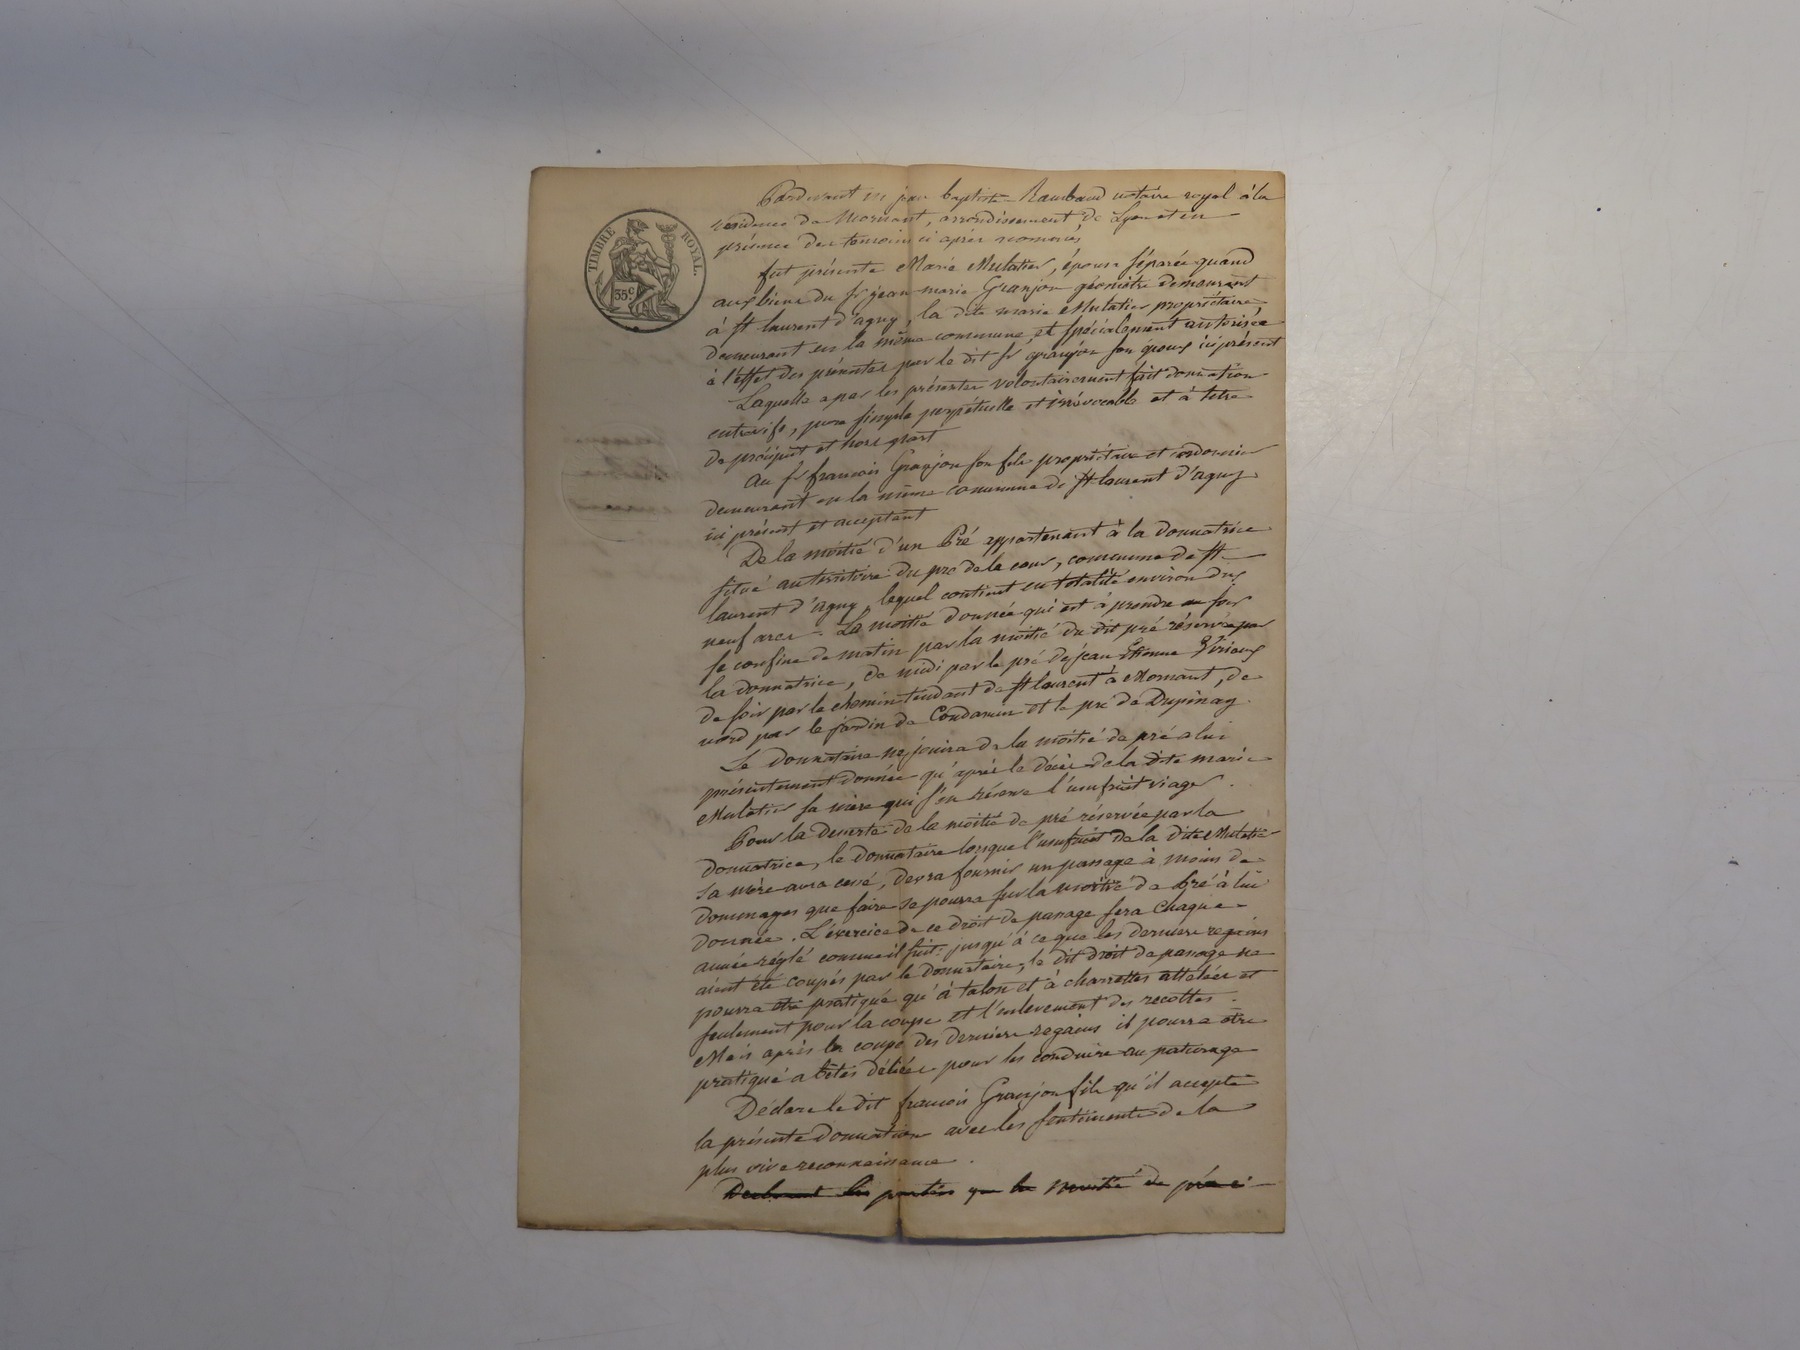 TIMBRE ROYAL.
35c
Pardevant me jean baptiste Raimbaud notaire royal à la
résidence de Mornant, arrondissement de Lyon et en
présence des temoins ci après nommés
fut présente Marie Mulatier, épouse séparée quand
aux biens du sr jean marie Granjon géomètre demeurant
à St laurent d'agny, la dite marie Mulatier propriétaire
demeurant en la même commune, et spécialement autorisée
à l'effet des présentes par le dit sr granjon son époux ici présent
Laquelle a par les présentes volontairement fait donnation
entrevifs, pure simple perpétuelle et irrévocable et à titre
de préciput et hors part
Au sr francois Granjon son fils propriétaire et cordonnier
demeurant en la même commune de St laurent d'agny
ici présent et acceptant
De la moitié d'un Pré appartenant à la donnatrice
situé au territoire du pré de la cour, commune de St
laurent d'agny, lequel contient en totalité environ dix
neuf ares. La moitié donnée qui est à prendre au soir
se confine de matin par la moitié du dit pré réservée par
la donnatrice, de midi par le pré de jean Etienne
de soir par le chemin tendant de St laurent à Mornant, de
nord par le jardin de Condamin et le pré de Dupinay.
Le donnataire ne jouira de la moitié de pré a lui
présentement donnée qu'après le décès de la dite marie
Mulatier sa mère qui s'en réserve l'usufruit viager.
Pour la deserte de la moitié de pré réservée par la
donnatrice, le donnataire lorsque l'usufruit de la dite Mulatier
sa mère aura cessé, devra fournir un passage à moins de
dommages que faire se pourra sur la moitié de Pré à lui
donnée. L'exercice de ce droit de passage sera chaque
année réglé comme il suit: jusqu'à ce que les derniers regains
aient été coupés par le donnataire, le dit droit de passage ne
pourra être pratiqué qu'à talon et à charrettes attelées et
seulement pour la coupe et l'enlevement des recoltes.
Mais après la coupe des derniers regains il pourra être
pratiqué a bêtes déliées pour les conduire au paturage
Déclare le dit francois Granjon fils qu'il accepte
la présente donnation avec les sentiments de la
plus vive reconnaissance.
Declarent les parties que la moitié de pré ci